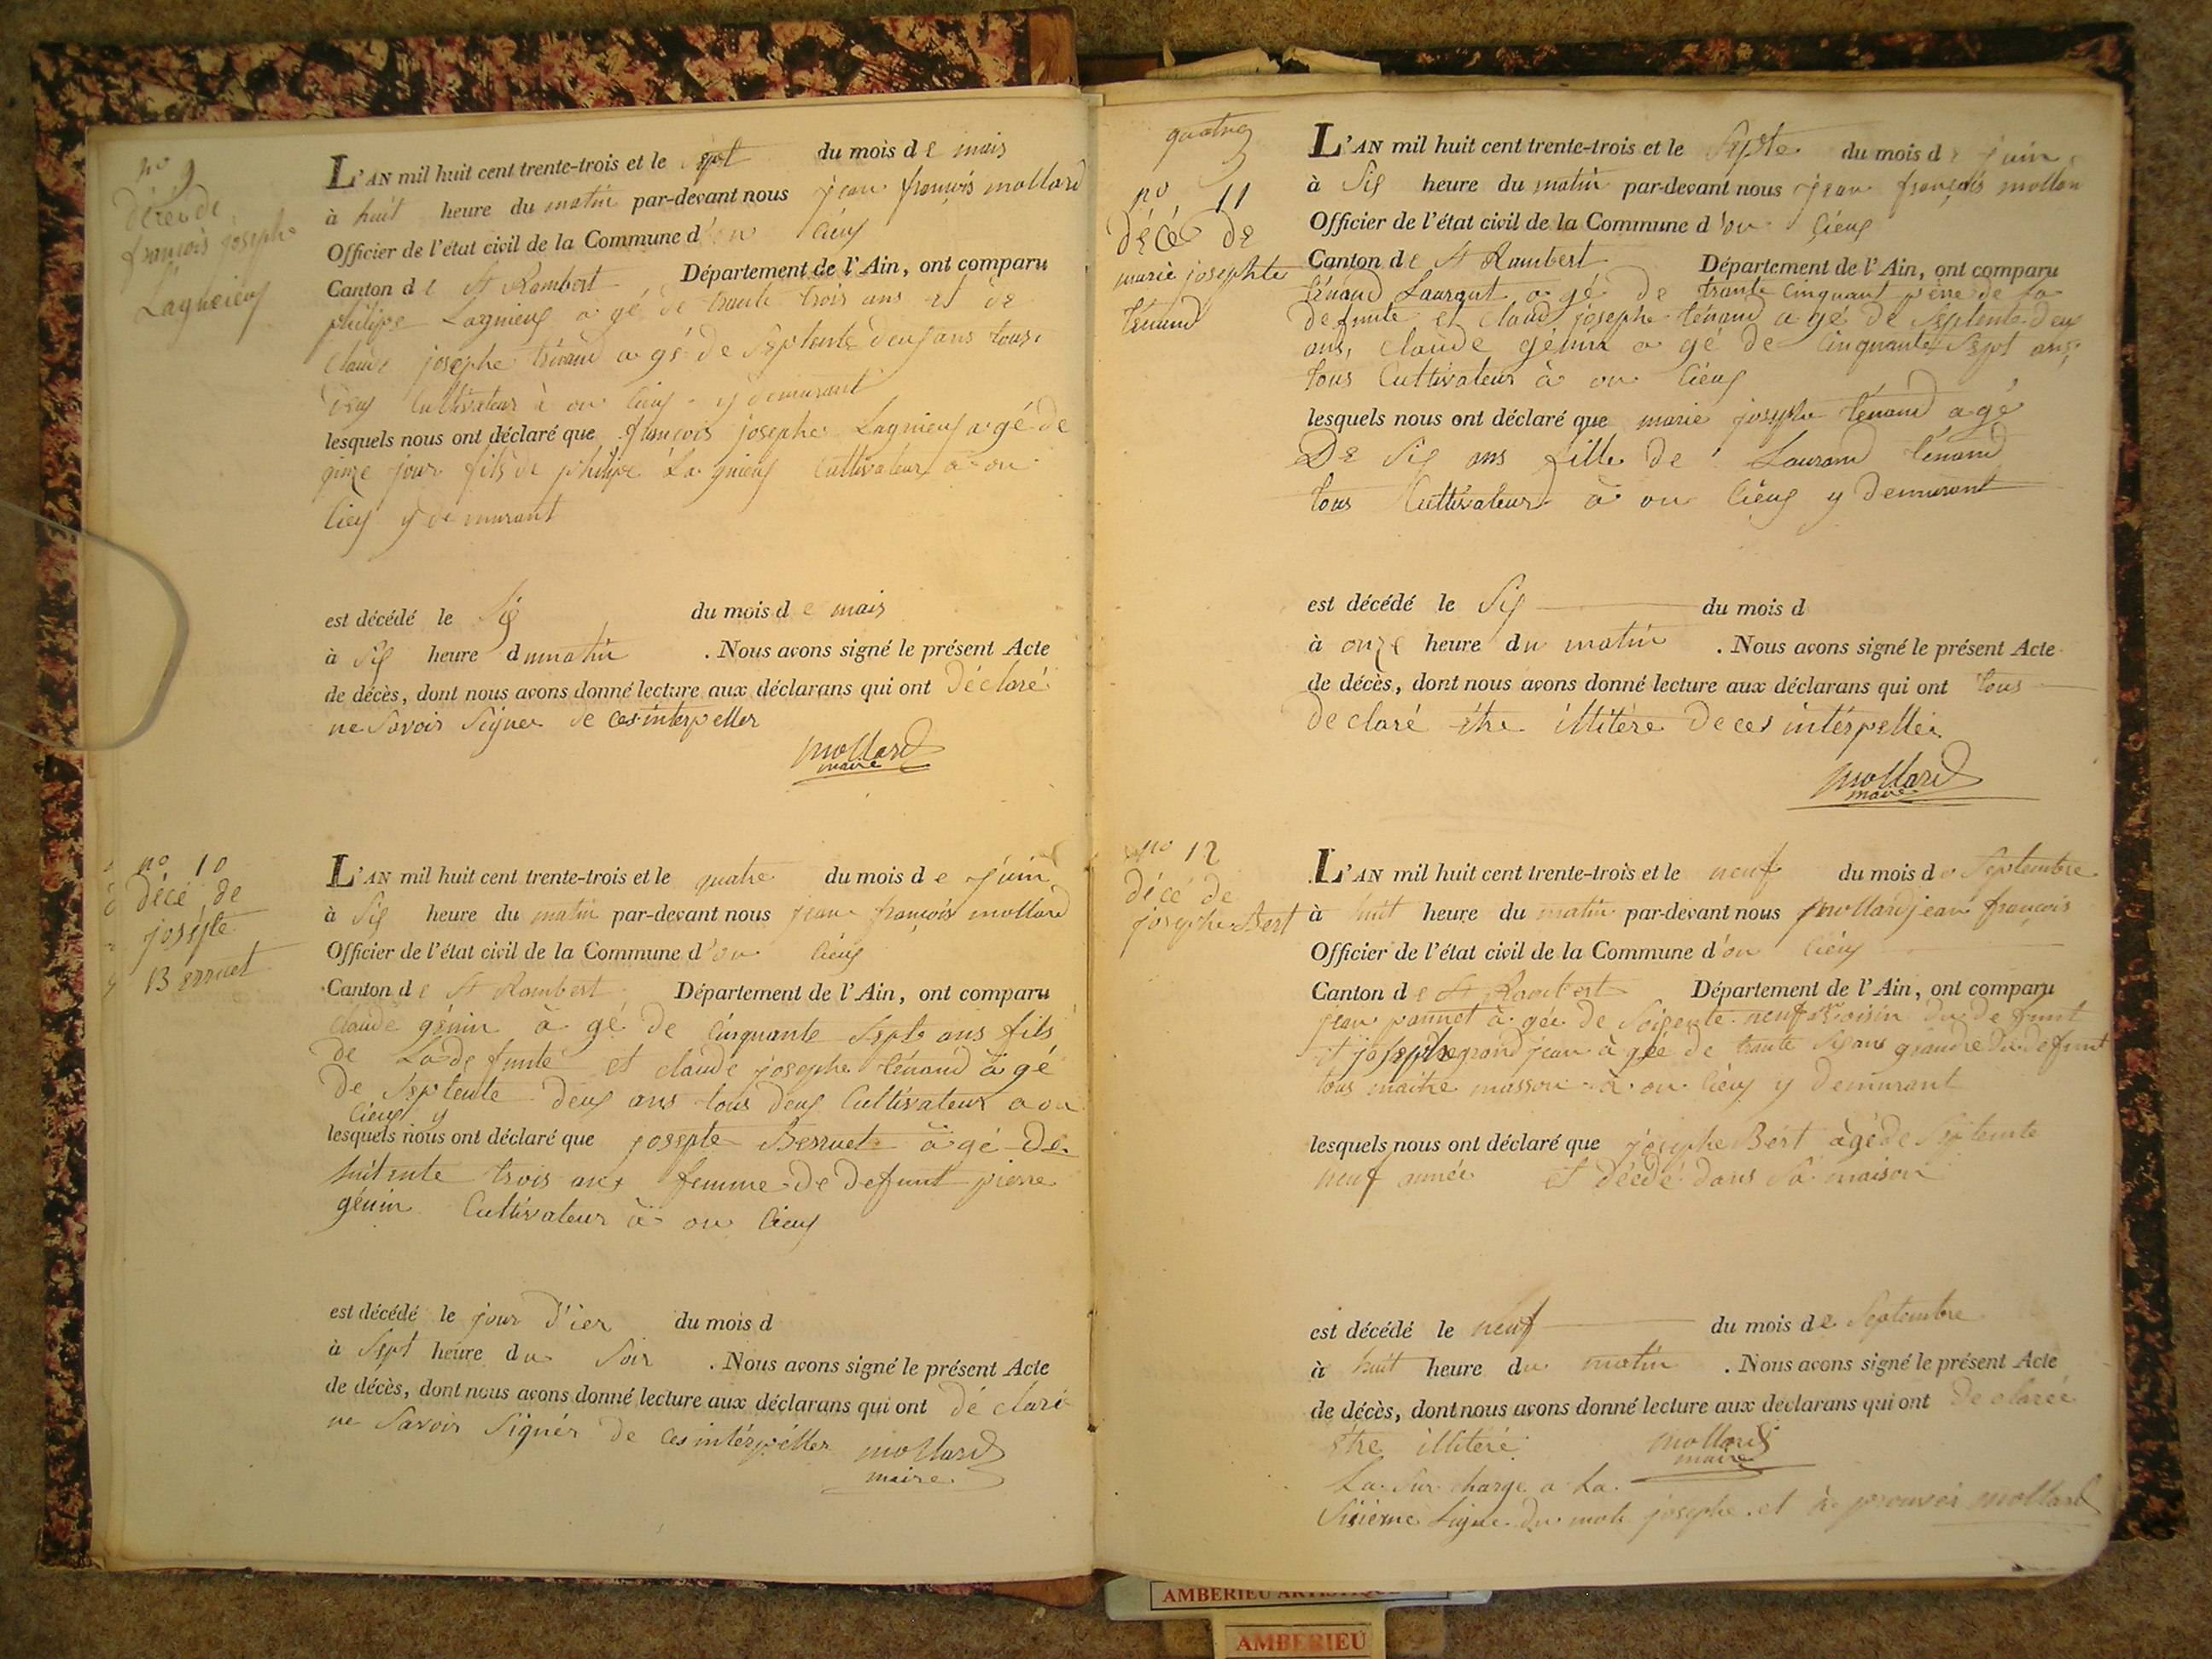 no 9
décé de
françois josephe
Lagnieux
L'AN mil huit cent trente-trois et le sept du mois de mais
à huit heure du matin par-devant nous jean françois mollard
Officier de l'état civil de la Commune d'on cieux
Canton de St Rambert Département de l'Ain, ont comparu
philipe Lagnieux a gé de trante trois ans et de
Claude josephe ténand a gé de Septente deux ans tous
deux Cultivateur à on cieux y demurant
lesquels nous ont déclaré que françois josephe Lagnieux a gé de
qinze jour fils de philipe Lagnieux Cultivateur à on
Cieux y demurant
est décédé le Six du mois de mais
à Six heure du matin . Nous avons signé le présent Acte
de décès, dont nous avons donné lecture aux déclarans qui ont déclaré
ne Savoir Signer de ces interpeller
mollard
maire
no 10
décé de
josepte
Berruet
L'AN mil huit cent trente-trois et le quatre du mois de juin
à Six heure du matin par-devant nous jean françois mollard
Officier de l'état civil de la Commune d'on cieux
Canton de St Rambert Département de l'Ain, ont comparu
claude génin à gé de Cinquante Septe ans fils
de La de funte et claude josephe ténand à gé
de Septente deux ans tous deux Cultivateur a on
Cieux y
lesquels nous ont déclaré que josepte Berruet à gé de
huitente trois ans femme de defunt pierre
génin Cultivateur à on Cieux
est décédé le jour d'ier du mois d
à Sept heure du Soir . Nous avons signé le présent Acte
de décès, dont nous avons donné lecture aux déclarans qui ont dé claré
ne Savoir Signér de ces intérpéller mollard
maire
quatre
no 11
décé de
marie josephte
ténand
L'AN mil huit cent trente-trois et le Septe du mois de juin
à Six heure du matin par-devant nous jean françois mollar
Officier de l'état civil de la Commune d'on Cieux
Canton de St Rambert Département de l'Ain, ont comparu
ténand Laurant a gé de trante cinquant père de la
defunte et claud josephe ténand a gé de Septente deux
ans, claude génin a gé de Cinquante Sept ans
tous Cultivateur à on Cieux
lesquels nous ont déclaré que marie josephe ténand a gé
De Six ans fille de Laurand ténand
tous Cultivateur à on Cieux y demurant
est décédé le Six du mois d
à onze heure du matin . Nous avons signé le présent Acte
de décès, dont nous avons donné lecture aux déclarans qui ont tous
declaré être illitére de ces intérpellér
mollard
maire
no 12
décé de
josephe Bert
L'AN mil huit cent trente-trois et le neuf du mois de Septembre
à huit heure du matin par-devant nous mollard jean françois
Officier de l'état civil de la Commune d'on Cieux
Canton de St Rambert Département de l'Ain, ont comparu
jean pannet à gée de Soixente neuf voisin du de funt
et josephe grand jean à gée de trante Six ans giandre du defunt
tous maitre masson à on Cieux y demurant
lesquels nous ont déclaré que josephe Bért àgé de Septente
neuf année et décédé dans Sa maison
est décédé le neuf du mois de Septembre
à huit heure du matin . Nous avons signé le présent Acte
de décès, dont nous avons donné lecture aux déclarans qui ont declarée
étre illiteré mollard
maire
La Sur charge a La
Sixieme Ligne du mot josephe et à prouvér mollard
AMBERIEU
AMBERIEU